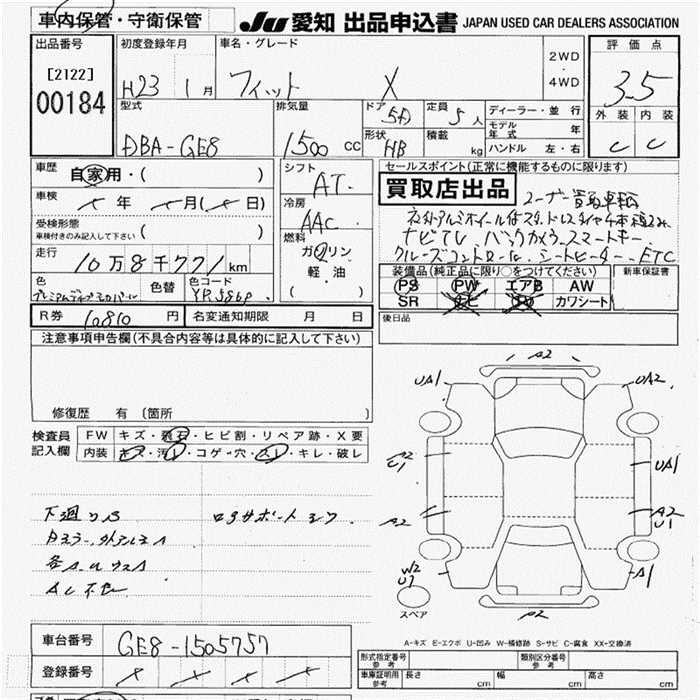 車内保管・守衛保管 JU 愛知 出品申込書 JAPAN USED CAR DEALERS ASSOCIATION
出品番号 初度登録年月 車名・グレード 2WD・4WD 評価点
[2122] H23 1月 フィット X 3.5
00184 型式 排気量 ドア 5D 定員 5人 ディーラー・並行 外装 内装
モデル年式 年
DBA-GE8 1500 CC 形状 HB 積載 kg ハンドル 左・右 C C
車歴 自家用・( ) シフト AT セールスポイント(正常に機能するものに限ります)
車検 年 月( 日) 冷房 AAC 買取店出品 ユーザー買取車輌
受検形態
車検付きのみ記入して下さい ( ) 燃料 ナビTV バックカメラ スマートキー
走行 10万8千771km ガソリン クルーズコントロール シートヒーター ETC
軽油 装備品(純正品に限り○をつけてください) 新車保証書
色 色替 色コード ( ) PS PW エアB AW
プレミアムディープモカパール SR ナビ TV カワシート
R券 10810円 名変通知期限 月 日 後日品
注意事項申告欄(不具合内容等は具体的に記入して下さい)
修復歴 有 〔箇所 〕
検査員記入欄 FW キズ・飛石・ヒビ割・リペア跡・X要
内装 キズ・汚レ・コゲ・穴・スレ・キレ・破レ
A2
UA1 UA2
U1 UA1
A2 A2 U1
W2 U1 A1
スペア A2
下廻りS
A-キズ E-エクボ U-凹み W-補修跡 S-サビ C-腐食 XX-交換済
車台番号 GE8-1505757
登録番号
形式指定番号 参考 類別区分番号 参考
車庫証明用 参考 長さ cm 幅 cm 高さ cm